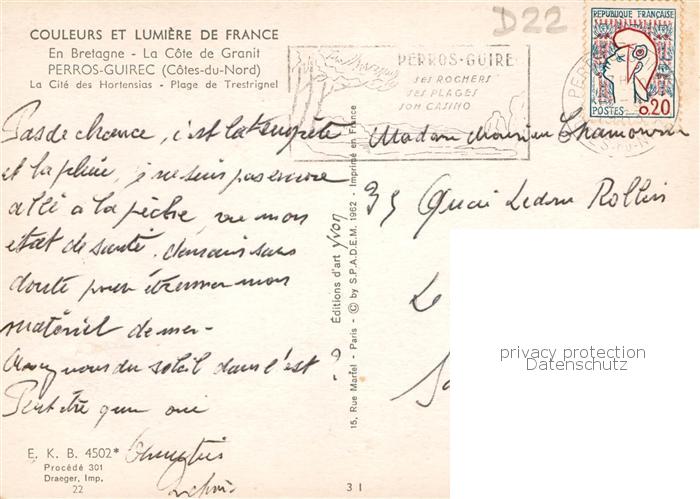 COULEURS ET LUMIÈRE DE FRANCE
En Bretagne - La Côte de Granit
PERROS-GUIREC (Côtes-du-Nord)
La Cité des Hortensias - Plage de Trestrignel
D22
PERROS-GUIRE
SES ROCHERS
SES PLAGES
SON CASINO
REPUBLIQUE FRANÇAISE
POSTES 0,20
Pas de chance, c'est la tempête
et la pluie, je ne suis pas encore
allé à la pêche, vu mon
état de santé. demain sans
doute pour étrenner mon
matériel de mer -
Avez vous du soleil dans l'est ?
Peut etre que oui
Madame Monsieur
35 Quai Ledru Rollin
Le
Editions d'art yvon
15, Rue Martel - Paris - © by S.P.A.D.E.M. 1962 - Imprimé en France
E. K. B. 4502*
Procédé 301
Draeger, Imp.
22
3 I
privacy protection
Datenschutz